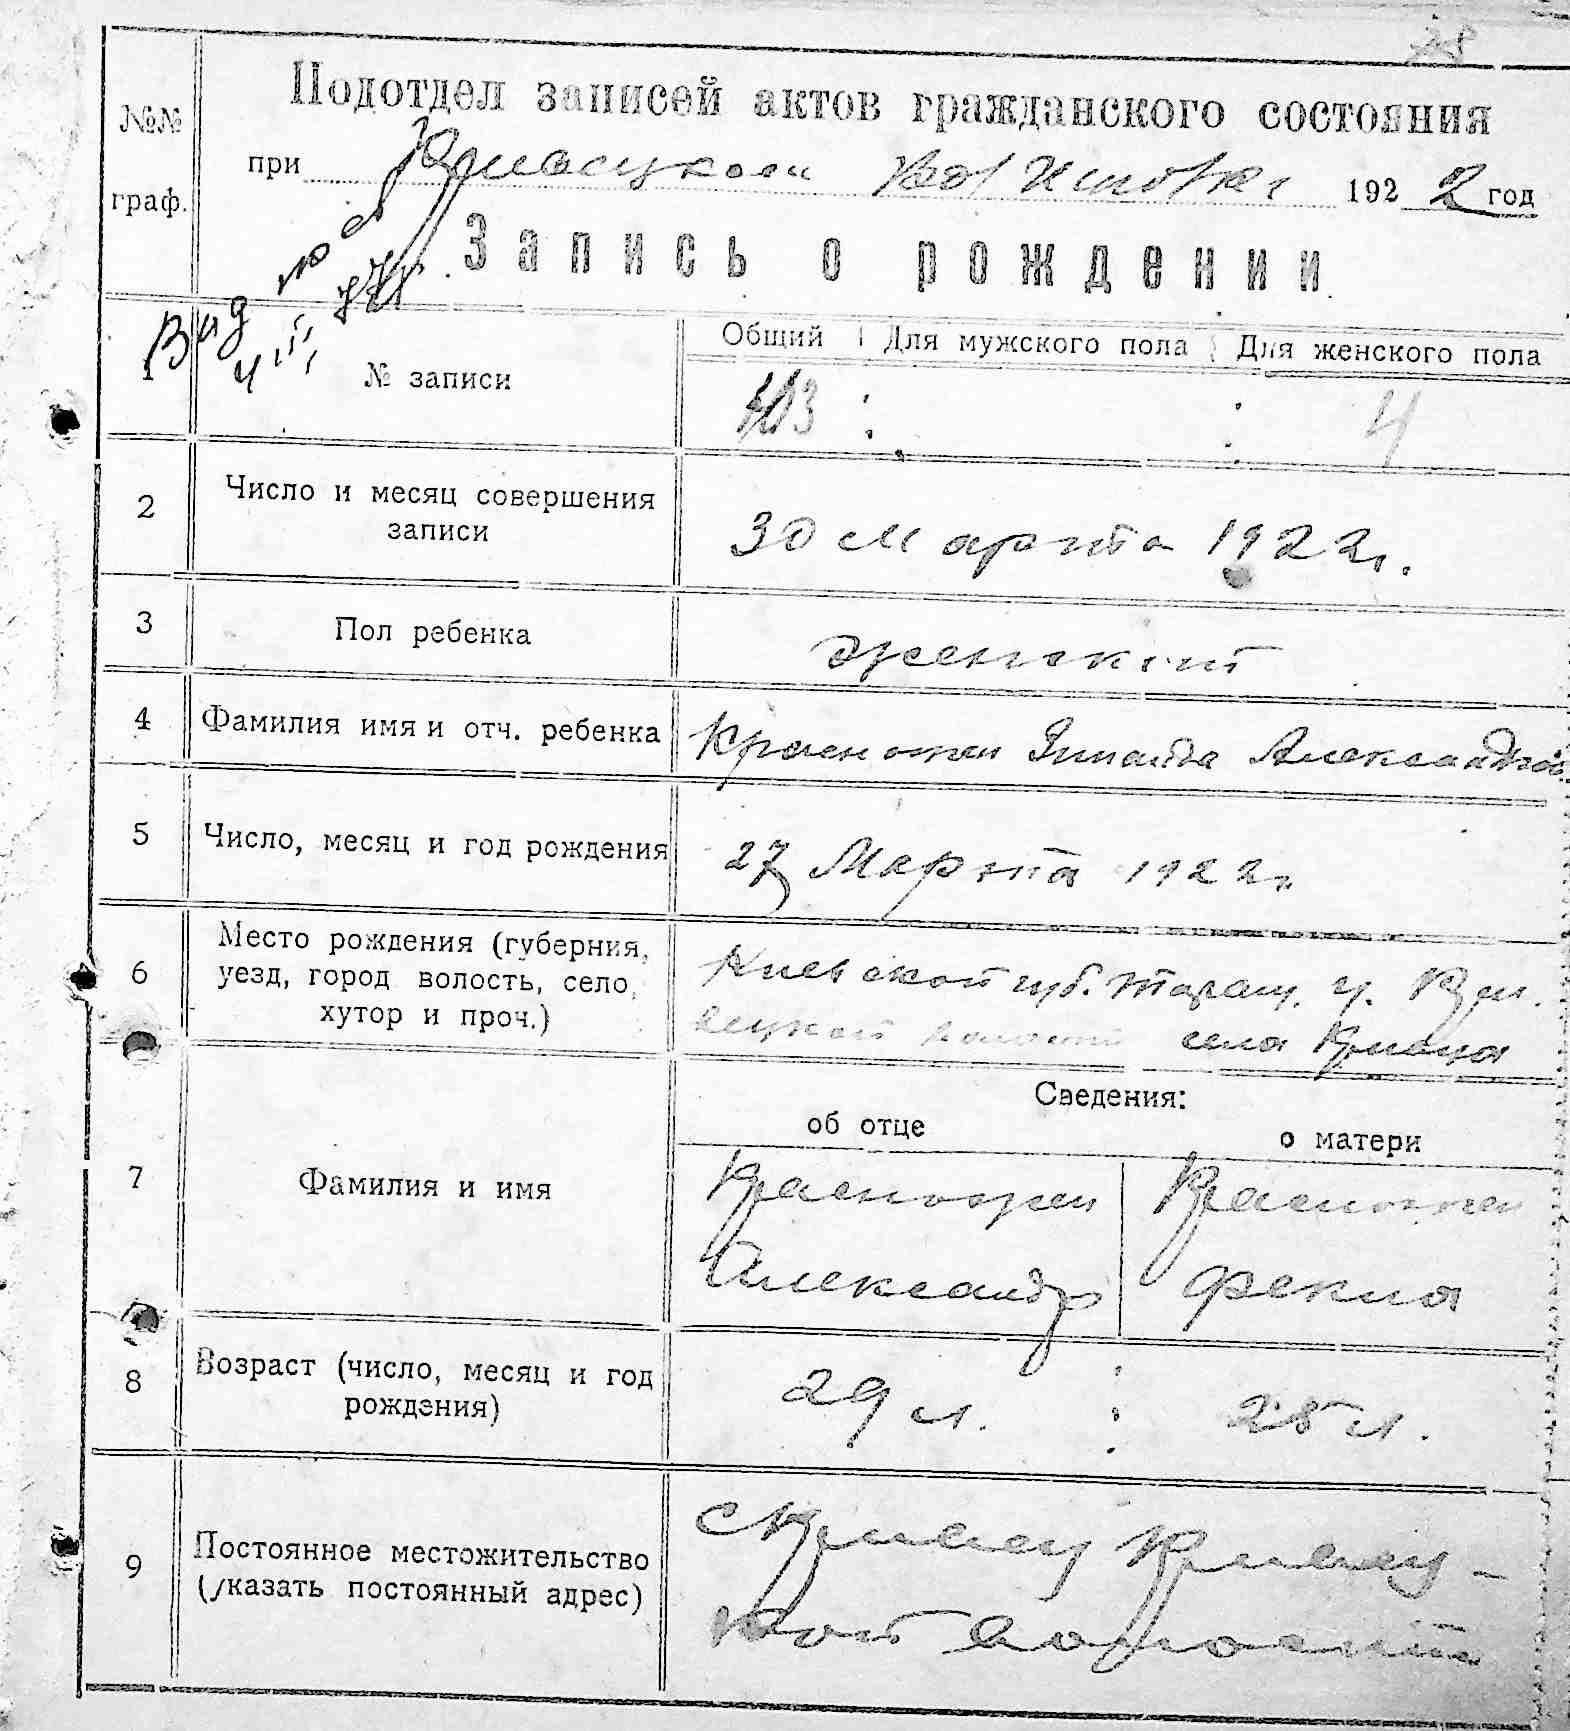 №№ граф.
Подотдел записей актов гражданского состояния
при Кривецком 1922 год
Запись о рождении
Общий Для мужского пола Для женского пола
1 № записи 4
2 Число и месяц совершения
записи
30 Марта 1922 г.
3 Пол ребенка женский
4 Фамилия имя и отч. ребенка Красножен Зинаида Александров.
5 Число, месяц и год рождения 27 Марта 1922 г
6 Место рождения (губерния,
уезд, город волость, село,
хутор и проч.)
Киевской губ. Таращ. у. Кри
вецкой волости села Кривца
Сведения:
об отце о матери
7 Фамилия и имя
Красножен Красножен
Александр Фекла
8 Возраст (число, месяц и год
рождения)
29 л. 28 л.
9 Постоянное местожительство
(указать постоянный адрес)
с Кривец Кривец-
кой волости